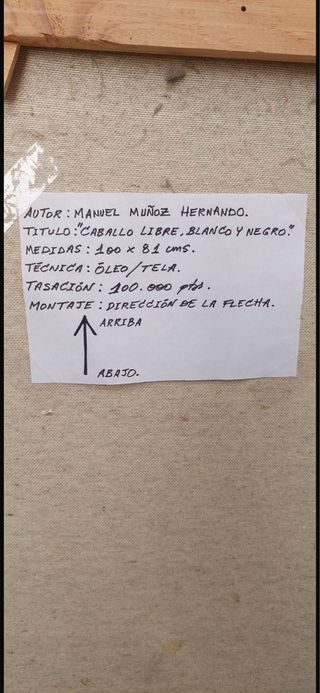 AUTOR: MANUEL MUÑOZ HERNANDO.
TITULO: "CABALLO LIBRE, BLANCO Y NEGRO."
MEDIDAS: 100 x 81 cms.
TÉCNICA: ÓLEO/TELA.
TASACIÓN: 100.000 ptas.
MONTAJE: DIRECCIÓN DE LA FLECHA.
ARRIBA
ABAJO.